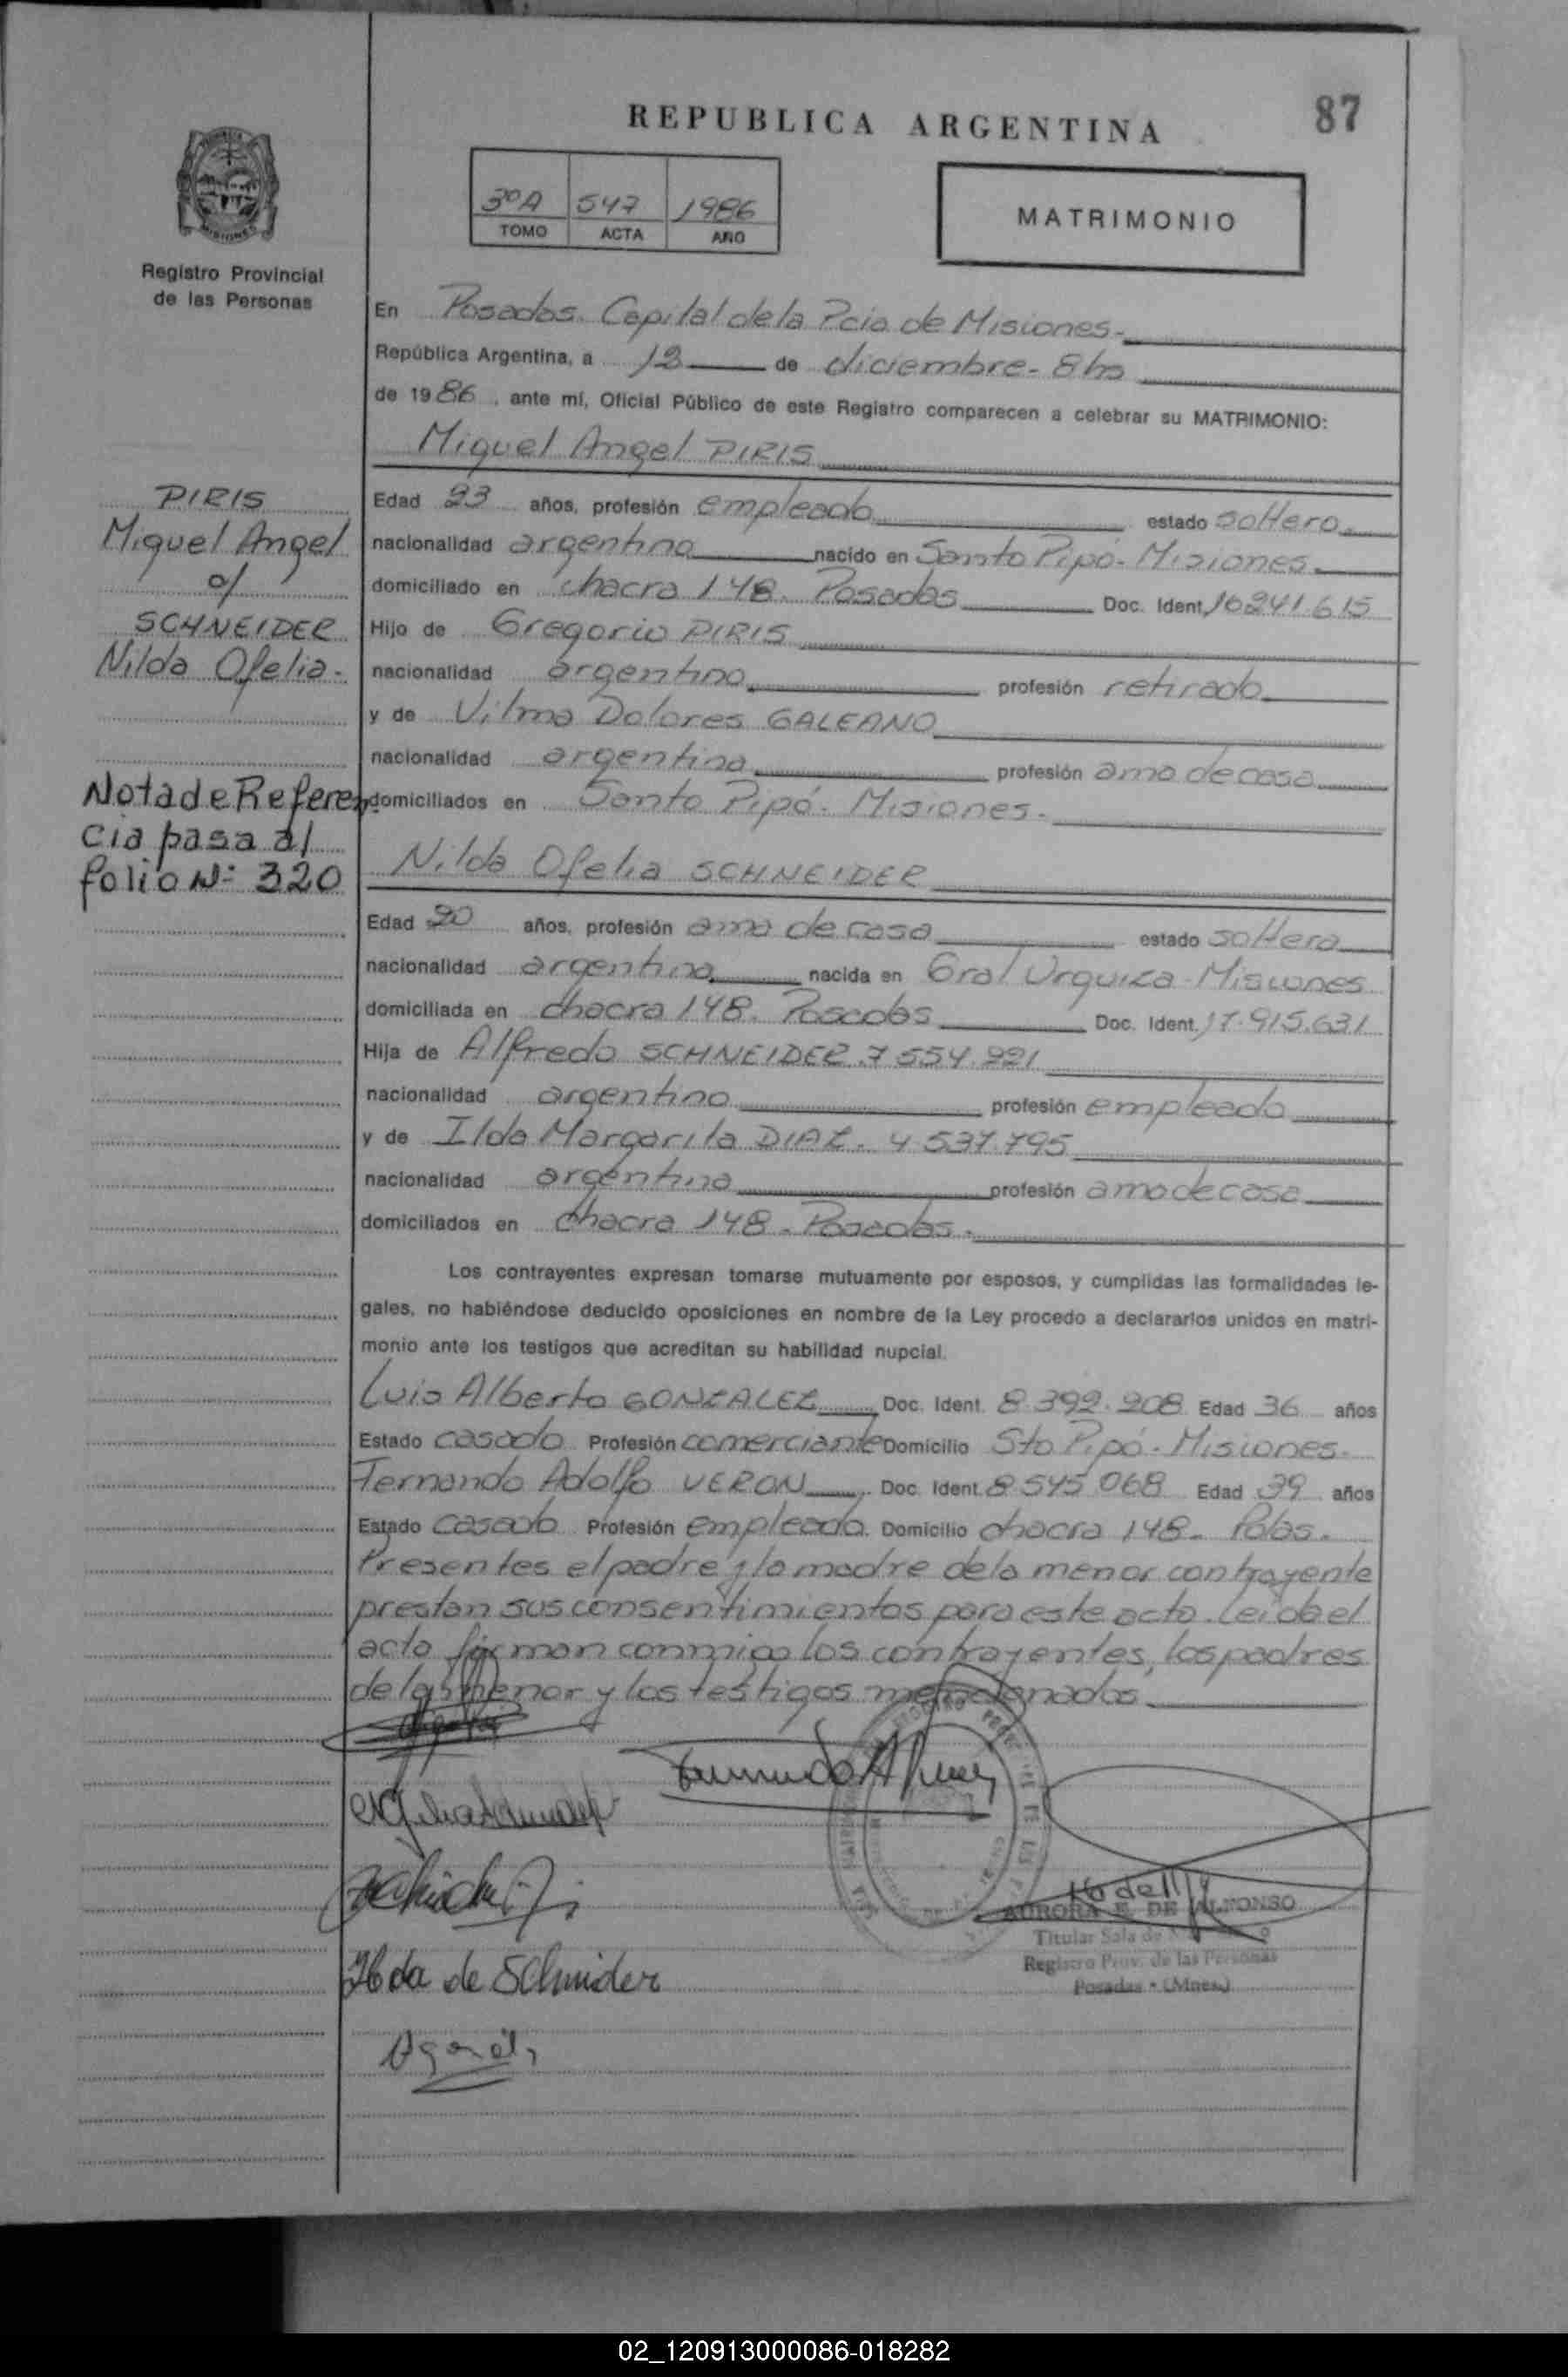 REPUBLICA ARGENTINA
87
3º A 547 1986
TOMO ACTA AÑO
MATRIMONIO
MISIONES
Registro Provincial
de las Personas
En Posadas. Capital de la Pcia de Misiones.-
República Argentina, a 12 de diciembre - 8 hs
de 1986, ante mí, Oficial Público de este Registro comparecen a celebrar su MATRIMONIO:
Miguel Angel PIRIS
PIRIS
Miguel Angel
c/
SCHNEIDER
Nilda Ofelia.-
Nota de Referen-
cia pasa al
folio Nº 320
Edad 23 años, profesión empleado estado soltero.
nacionalidad argentino nacido en Santo Pipó - Misiones.
domiciliado en chacra 148. Posadas Doc. Ident. 16241.615
Hijo de Gregorio PIRIS
nacionalidad argentino profesión retirado
y de Vilma Dolores GALEANO
nacionalidad argentina profesión ama de casa
domiciliados en Santo Pipó - Misiones.-
Nilda Ofelia SCHNEIDER
Edad 20 años, profesión ama de casa estado soltera
nacionalidad argentina nacida en Gral Urquiza - Misiones
domiciliada en chacra 148. Posadas Doc. Ident. 17.915.631
Hija de Alfredo SCHNEIDER. 7 554.221
nacionalidad argentino profesión empleado
y de Ilda Margarita DIAZ - 4 537.795
nacionalidad argentina profesión ama de casa
domiciliados en chacra 148 - Posadas.-
Los contrayentes expresan tomarse mutuamente por esposos, y cumplidas las formalidades le-
gales, no habiéndose deducido oposiciones en nombre de la Ley procedo a declararlos unidos en matri-
monio ante los testigos que acreditan su habilidad nupcial.
Luis Alberto GONZALEZ Doc. Ident. 8.392.208 Edad 36 años
Estado casado Profesión comerciante Domicilio Sto Pipó - Misiones.-
Fernando Adolfo VERON Doc. Ident. 8.545 068 Edad 39 años
Estado casado Profesión empleado Domicilio chacra 148 - Pdas.
Presentes el padre y la madre de la menor contrayente
prestan sus consentimientos para este acto. Leida el
acta firman conmigo los contrayentes, los padres
de la menor y los testigos mencionados.
Ilda de Schnider
AURORA E. DE ALFONSO
Titular Sala de
Registro Prov. de las Personas
Posadas - (Mnes.)
02_120913000086-018282